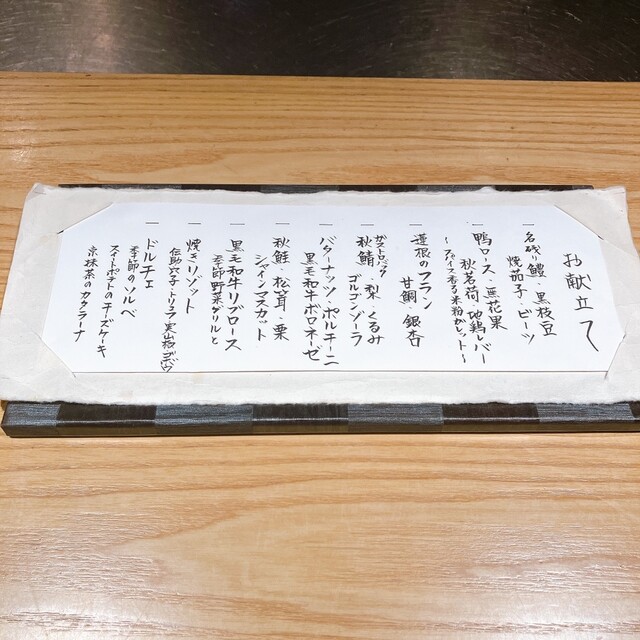 お献立て
一 名残り鱧・黒枝豆
焼茄子・ビーツ
一 鴨ロース・無花果
秋茗荷・地鶏レバー
一 蓮根のフラン
甘鯛・銀杏
一
秋鯖・梨・くるみ
ゴルゴンゾーラ
一 バターナッツ・ポルチーニ
黒毛和牛ボロネーゼ
一 秋鮭・松茸・栗
シャインマスカット
一 黒毛和牛リブロース
季節野菜グリルと
一 焼きリゾット
伝助穴子・トリュフ
一 ドルチェ
季節のソルベ
スイートポテトのチーズケーキ
京抹茶のカタラーナ